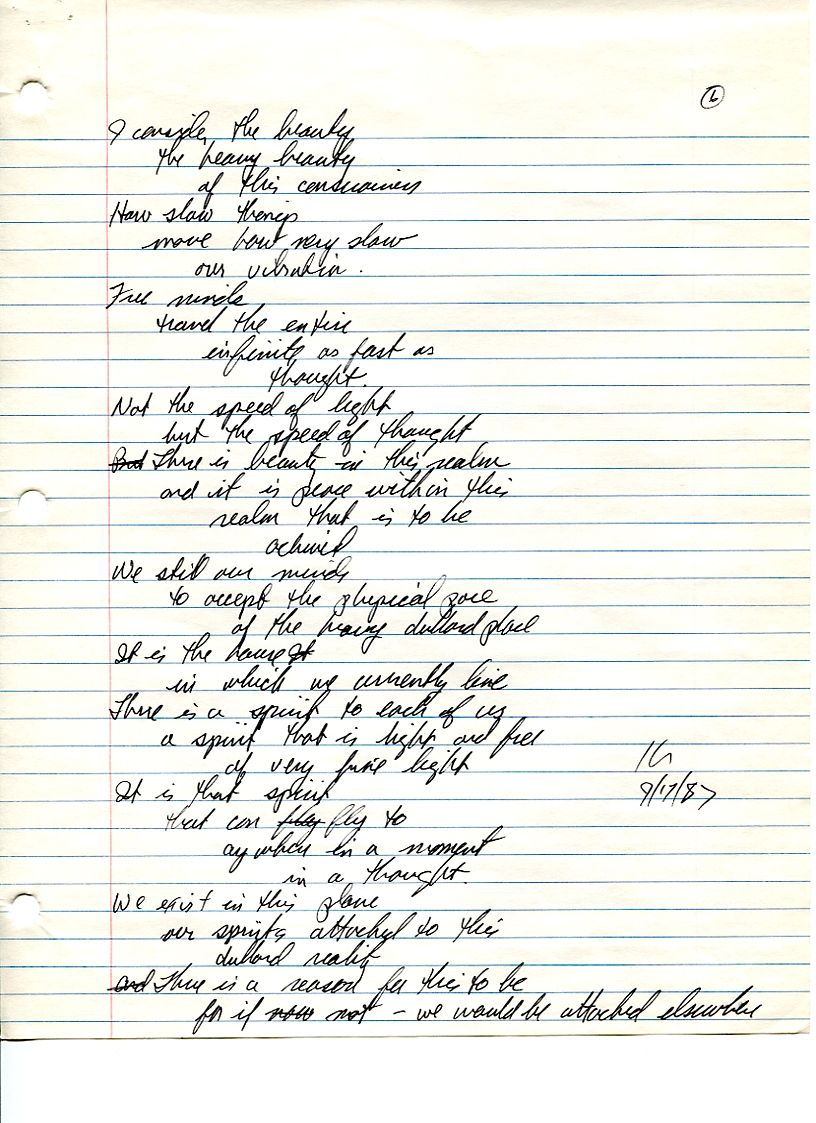 6
I consider the beauty
the heavy beauty
of this consciousness
How slow things
move how very slow
our vibration.
Free minds
travel the entire
infinite as fast as
thought.
Not the speed of light
but the speed of thought
But There is beauty in this realm
and it is peace within this
realm that is to be
achieved
We still our minds
to accept the physical
of the heavy dullard place
It is the house It
in which we currently live
There is a spirit to each of us
a spirit that is light and free
of very pure light
9/17/87
It is that spirit
that can flay fly to
anywhere in a moment
in a thought.
We exist in this plane
our spirits attached to this
dullard reality
and There is a reason for this to be
for if now not – we would be attached elsewhere